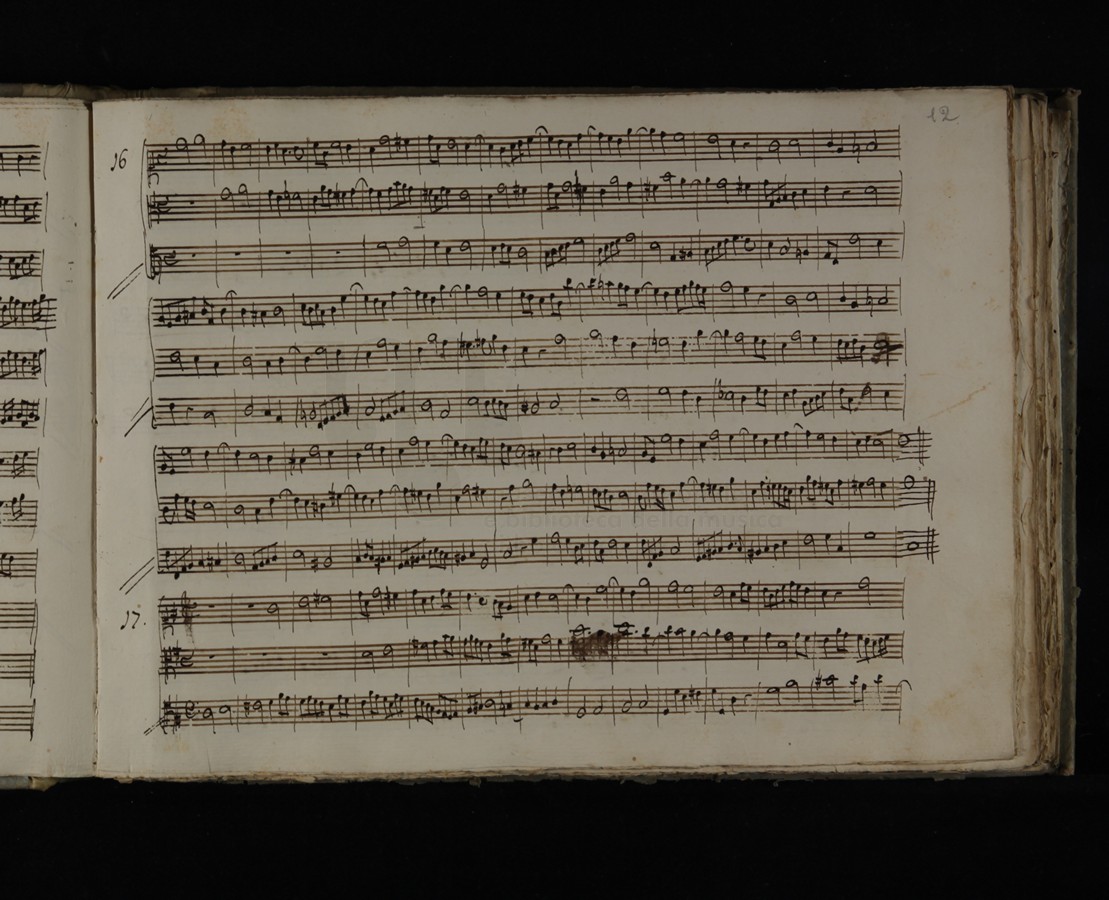 12
16
e biblioteca della musica
17.